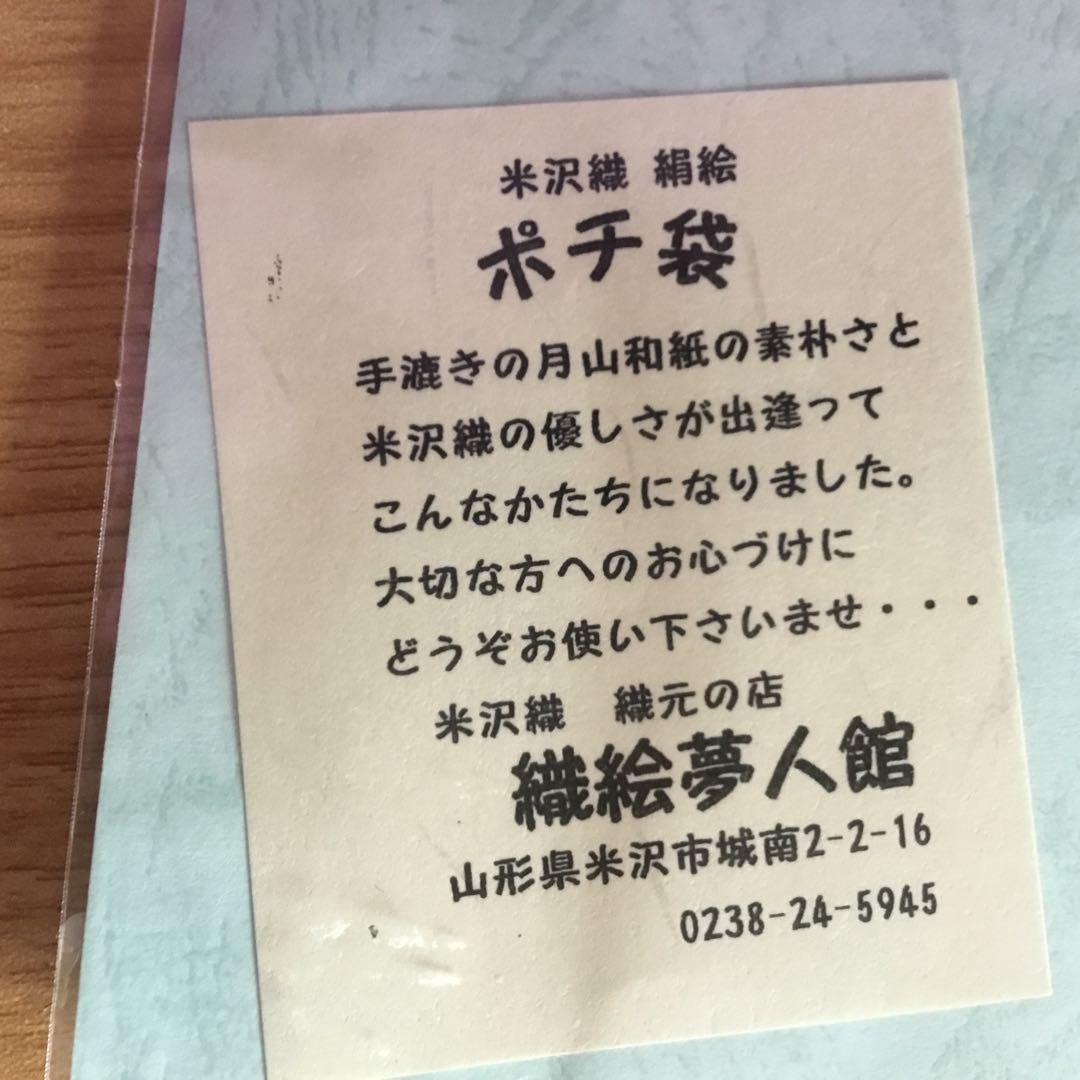 米沢織 絹絵
ポチ袋
手漉きの月山和紙の素朴さと
米沢織の優しさが出逢って
こんなかたちになりました。
大切な方へのお心づけに
どうぞお使い下さいませ・・・
米沢織 織元の店
織絵夢人館
山形県米沢市城南2-2-16
0238-24-5945